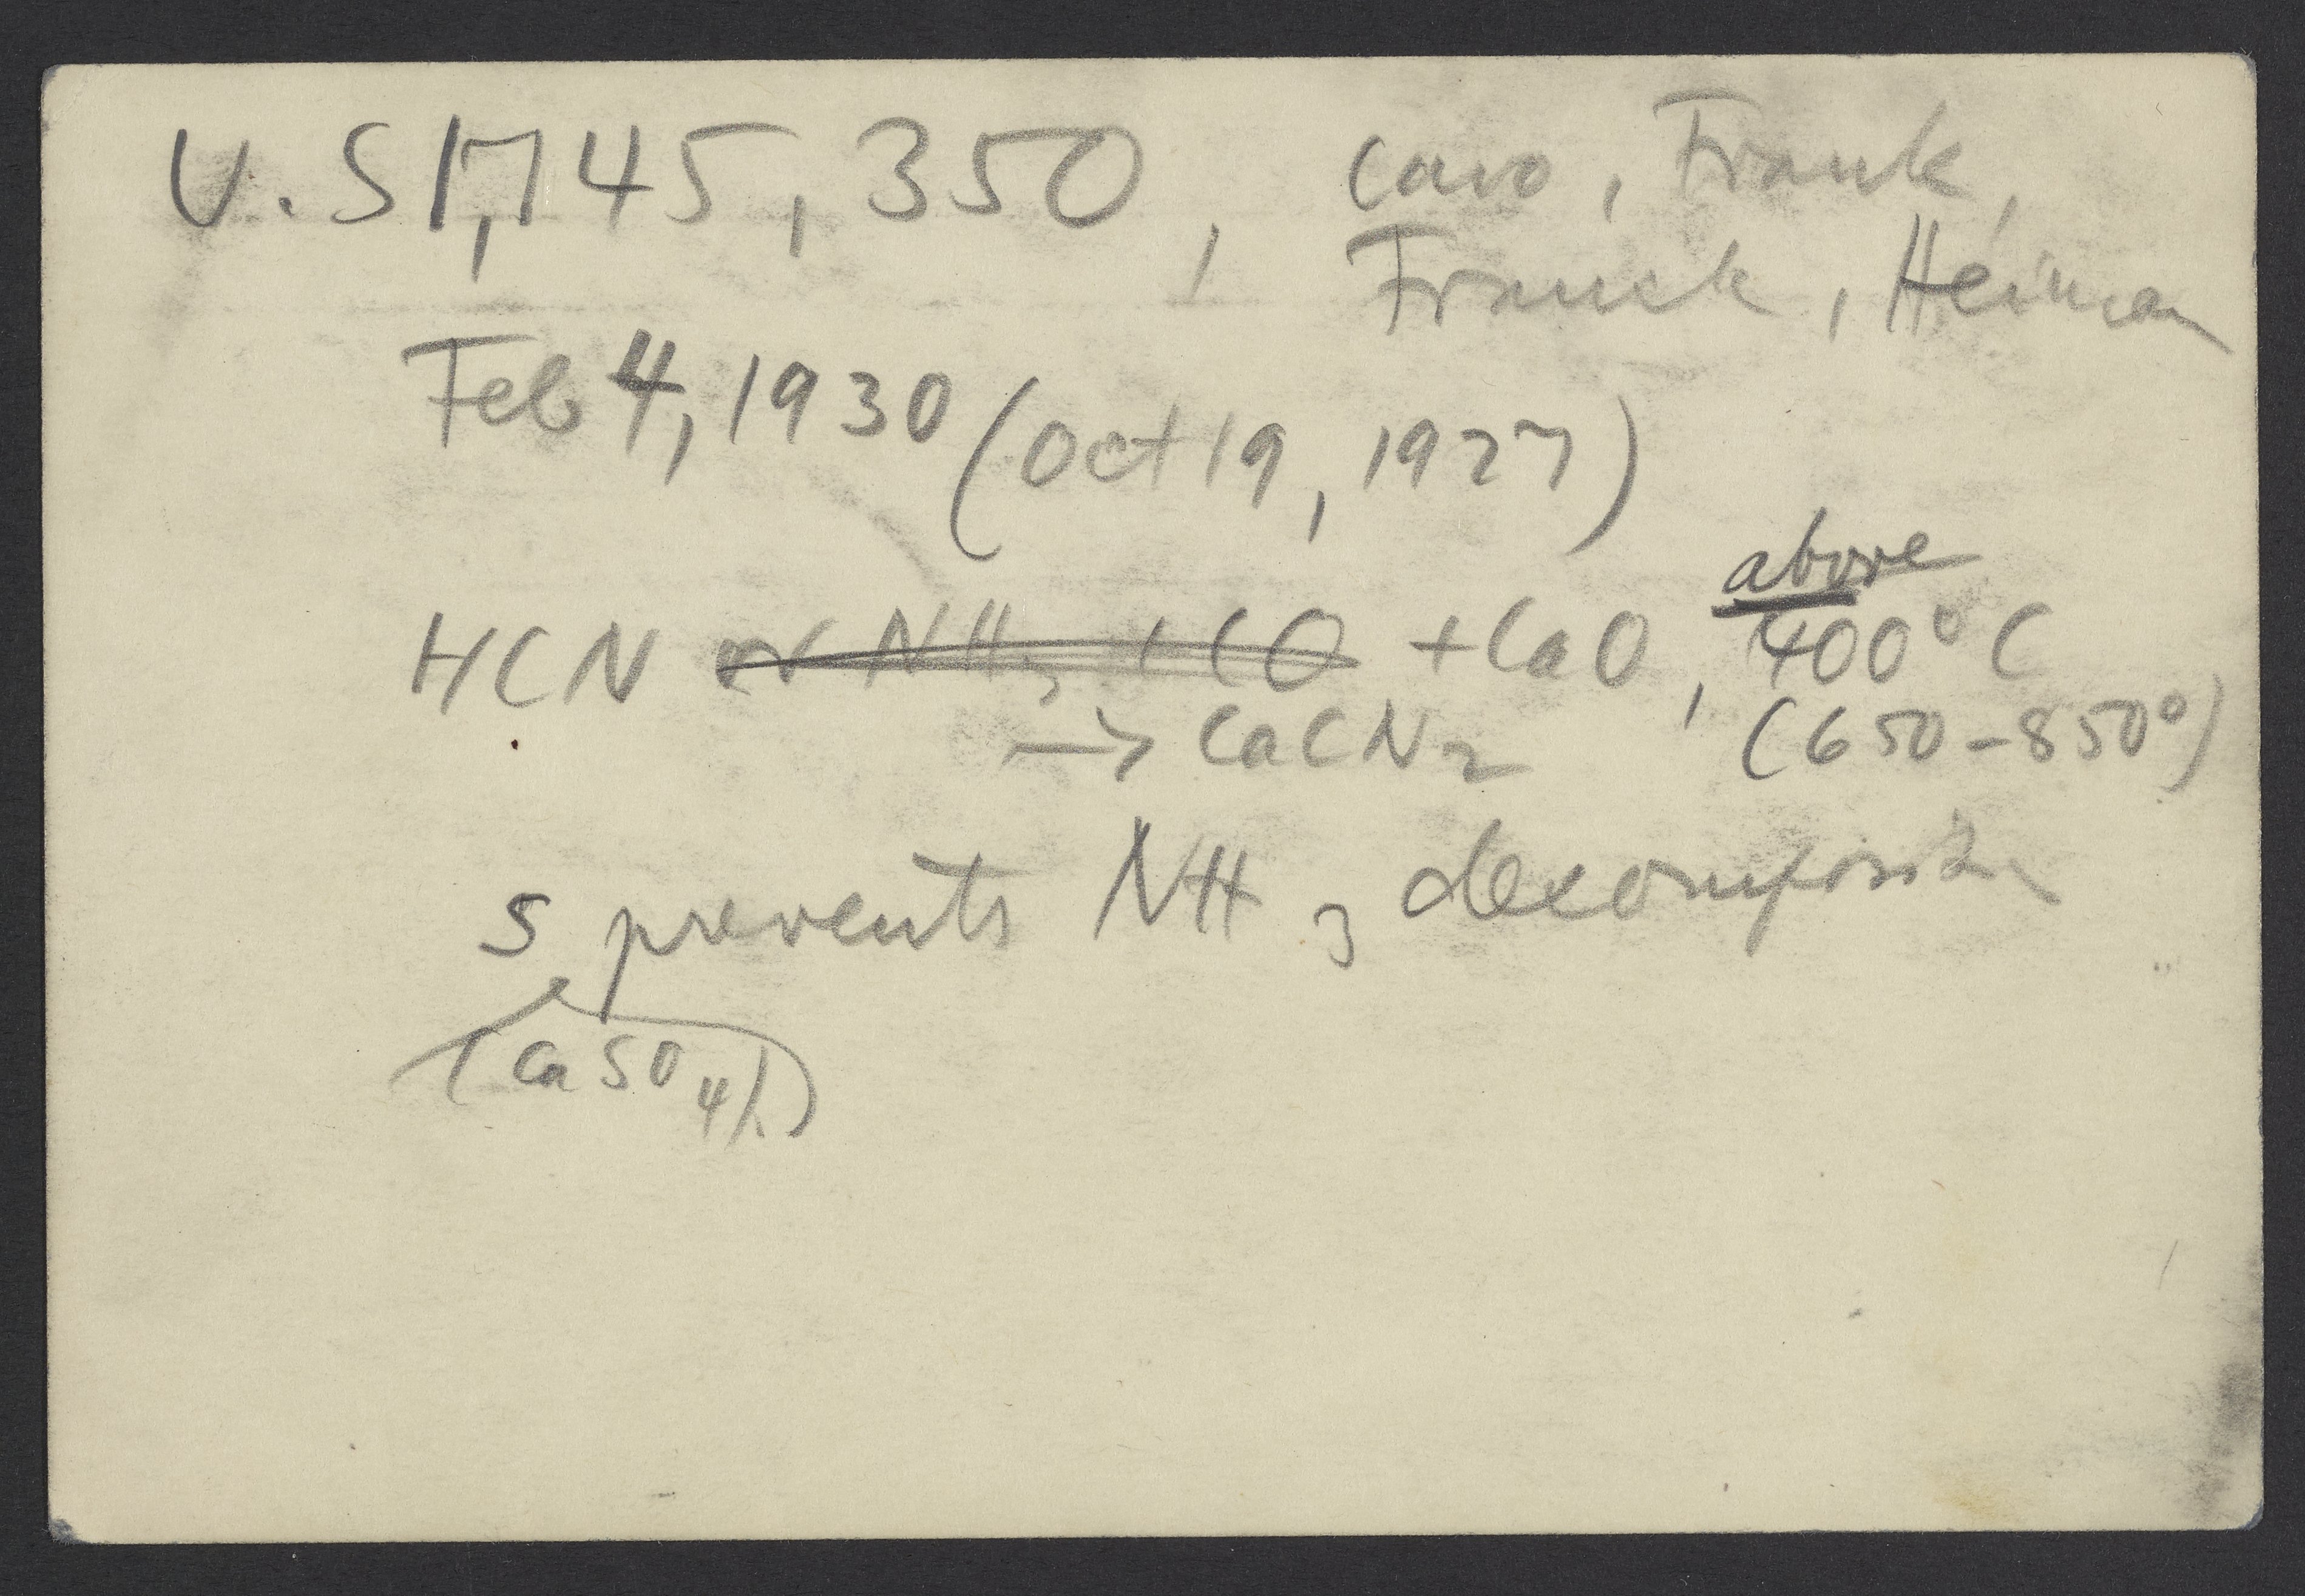 U.S 1,745,350, Caro, Frank,
Franck, Heiman
Feb 4, 1930 (Oct 19, 1927)
above
HCN or NH3 + CO + CaO, 400°C
→ CaCN2 (650-850°)
S prevents NH3 decomposition
(CaSO4)